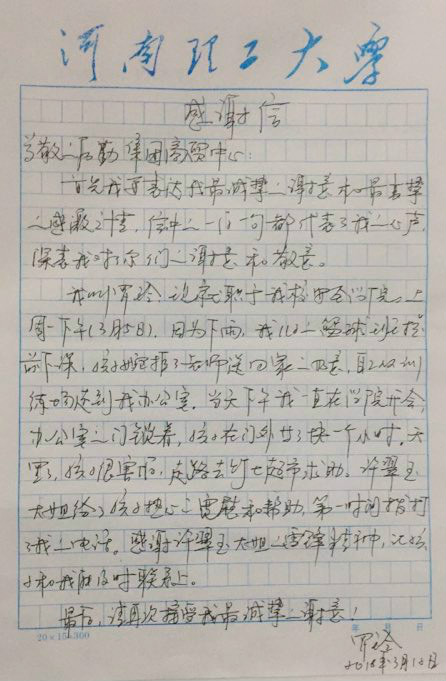 河南理工大学
感谢信
尊敬的后勤集团商贸中心:
首先我要表达我最诚挚的谢意和最真挚
的感激之情,信中的一门句都代表了我的心声,
深表我对你们的谢意和敬意。
我叫罗玲,现就职于我校安全学院。上
周一下午(3月5日),因为下雨,我儿的篮球班提
前下课,孩子婉拒了老师送回家的好意,自己从训
练场走到我办公室。当天下午我一直在学院开会,
办公室的门锁着,孩子在门外等了快一个小时,天
黑了,孩子很害怕,走路去竹七超市求助。许翠玉
大姐给了孩子热心的安慰和帮助,第一时间拨打
了我的电话。感谢许翠玉大姐的雷锋精神,让孩
子和我能及时联系上。
最后,请再次接受我最诚挚的谢意!
20×15=300 年 月 日
罗玲
2018年3月12日